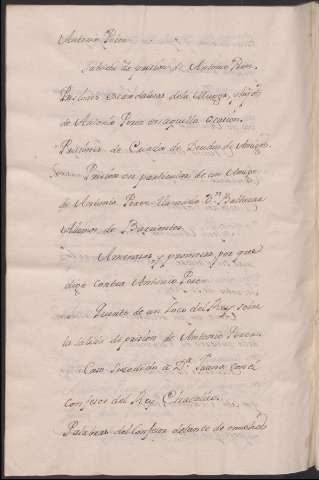 Antonio Perez.
Salida de prision de Antonio Perez.
Prisiones de la Muger, e hijos
de Antonio Perez en aquella ocasion.
Prisiones de de Deudos de Amigos.
Prision en particular de un Amigo
de Antonio Perez llamado Dn. Balthasar
Alamos de Barrientos.
Amenazas, y promesas por que
diga contra Antonio Perez.
Quento de un Loco del Rey, sobre
la salida de prision de Antonio Perez.
Caso sucedido á Da. Juana con el
Confesor del Rey
Palabras del Confesor delante de muchos